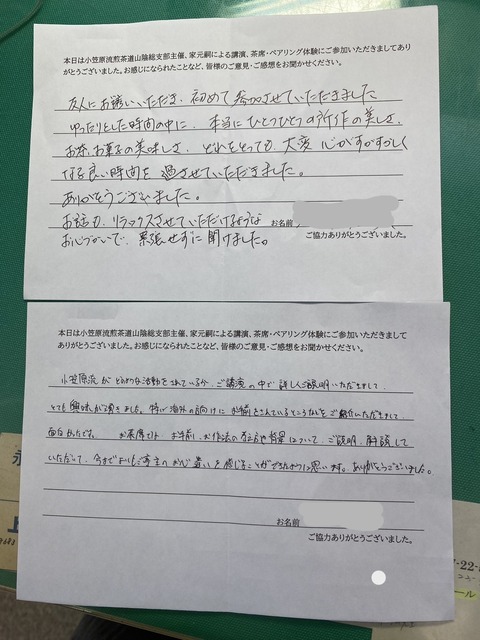 本日は小笠原流煎茶道山陰総支部主催、家元嗣による講演、茶席・ペアリング体験にご参加いただきましてあり
がとうございました。お感じになられたことなど、皆様のご意見・ご感想をお聞かせください。
友人にお誘いいただき、初めて参加させていただきました
ゆったりとした時間の中に、本当にひとつひとつの所作の美しさ、
お茶、お菓子の美味しさ、どれをとっても、大変 心がすがすがしく
なる良い時間を過させていただきました。
ありがとうございました。
お話も、リラックスさせていただけるような
お心づかいで、緊張せずに聞けました。
お名前
ご協力ありがとうございました。
本日は小笠原流煎茶道山陰総支部主催、家元嗣による講演、茶席・ペアリング体験にご参加いただきまして
ありがとうございました。お感じになられたことなど、皆様のご意見・ご感想をお聞かせください。
小笠原流がどのような活動をされているか、ご講演の中で詳しくご説明いただきまして
とても興味が湧きました。特に海外の向けにお稽古をされているところなどをご紹介いただきまして
面白かったです。 お茶席では、お手前、お作法の意味や背景について、ご説明、解説して
いただいて、今まで よりもご亭主の お心遣いを感じることができたように思います。ありがとうございました。
お名前
ご協力ありがとうございました。
上
7-22-
ール